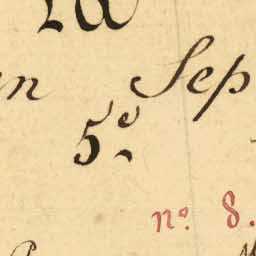 n Sep
5e.
no. 8.